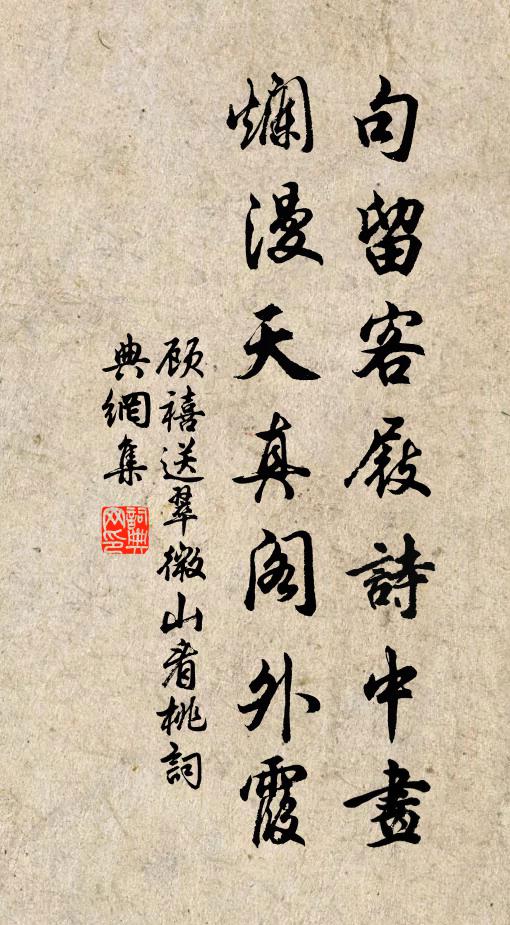 句留客屐詩中畫
爛漫天真閣外霞
顾禧送翠微山看桃詞
典網集
詞典
网印